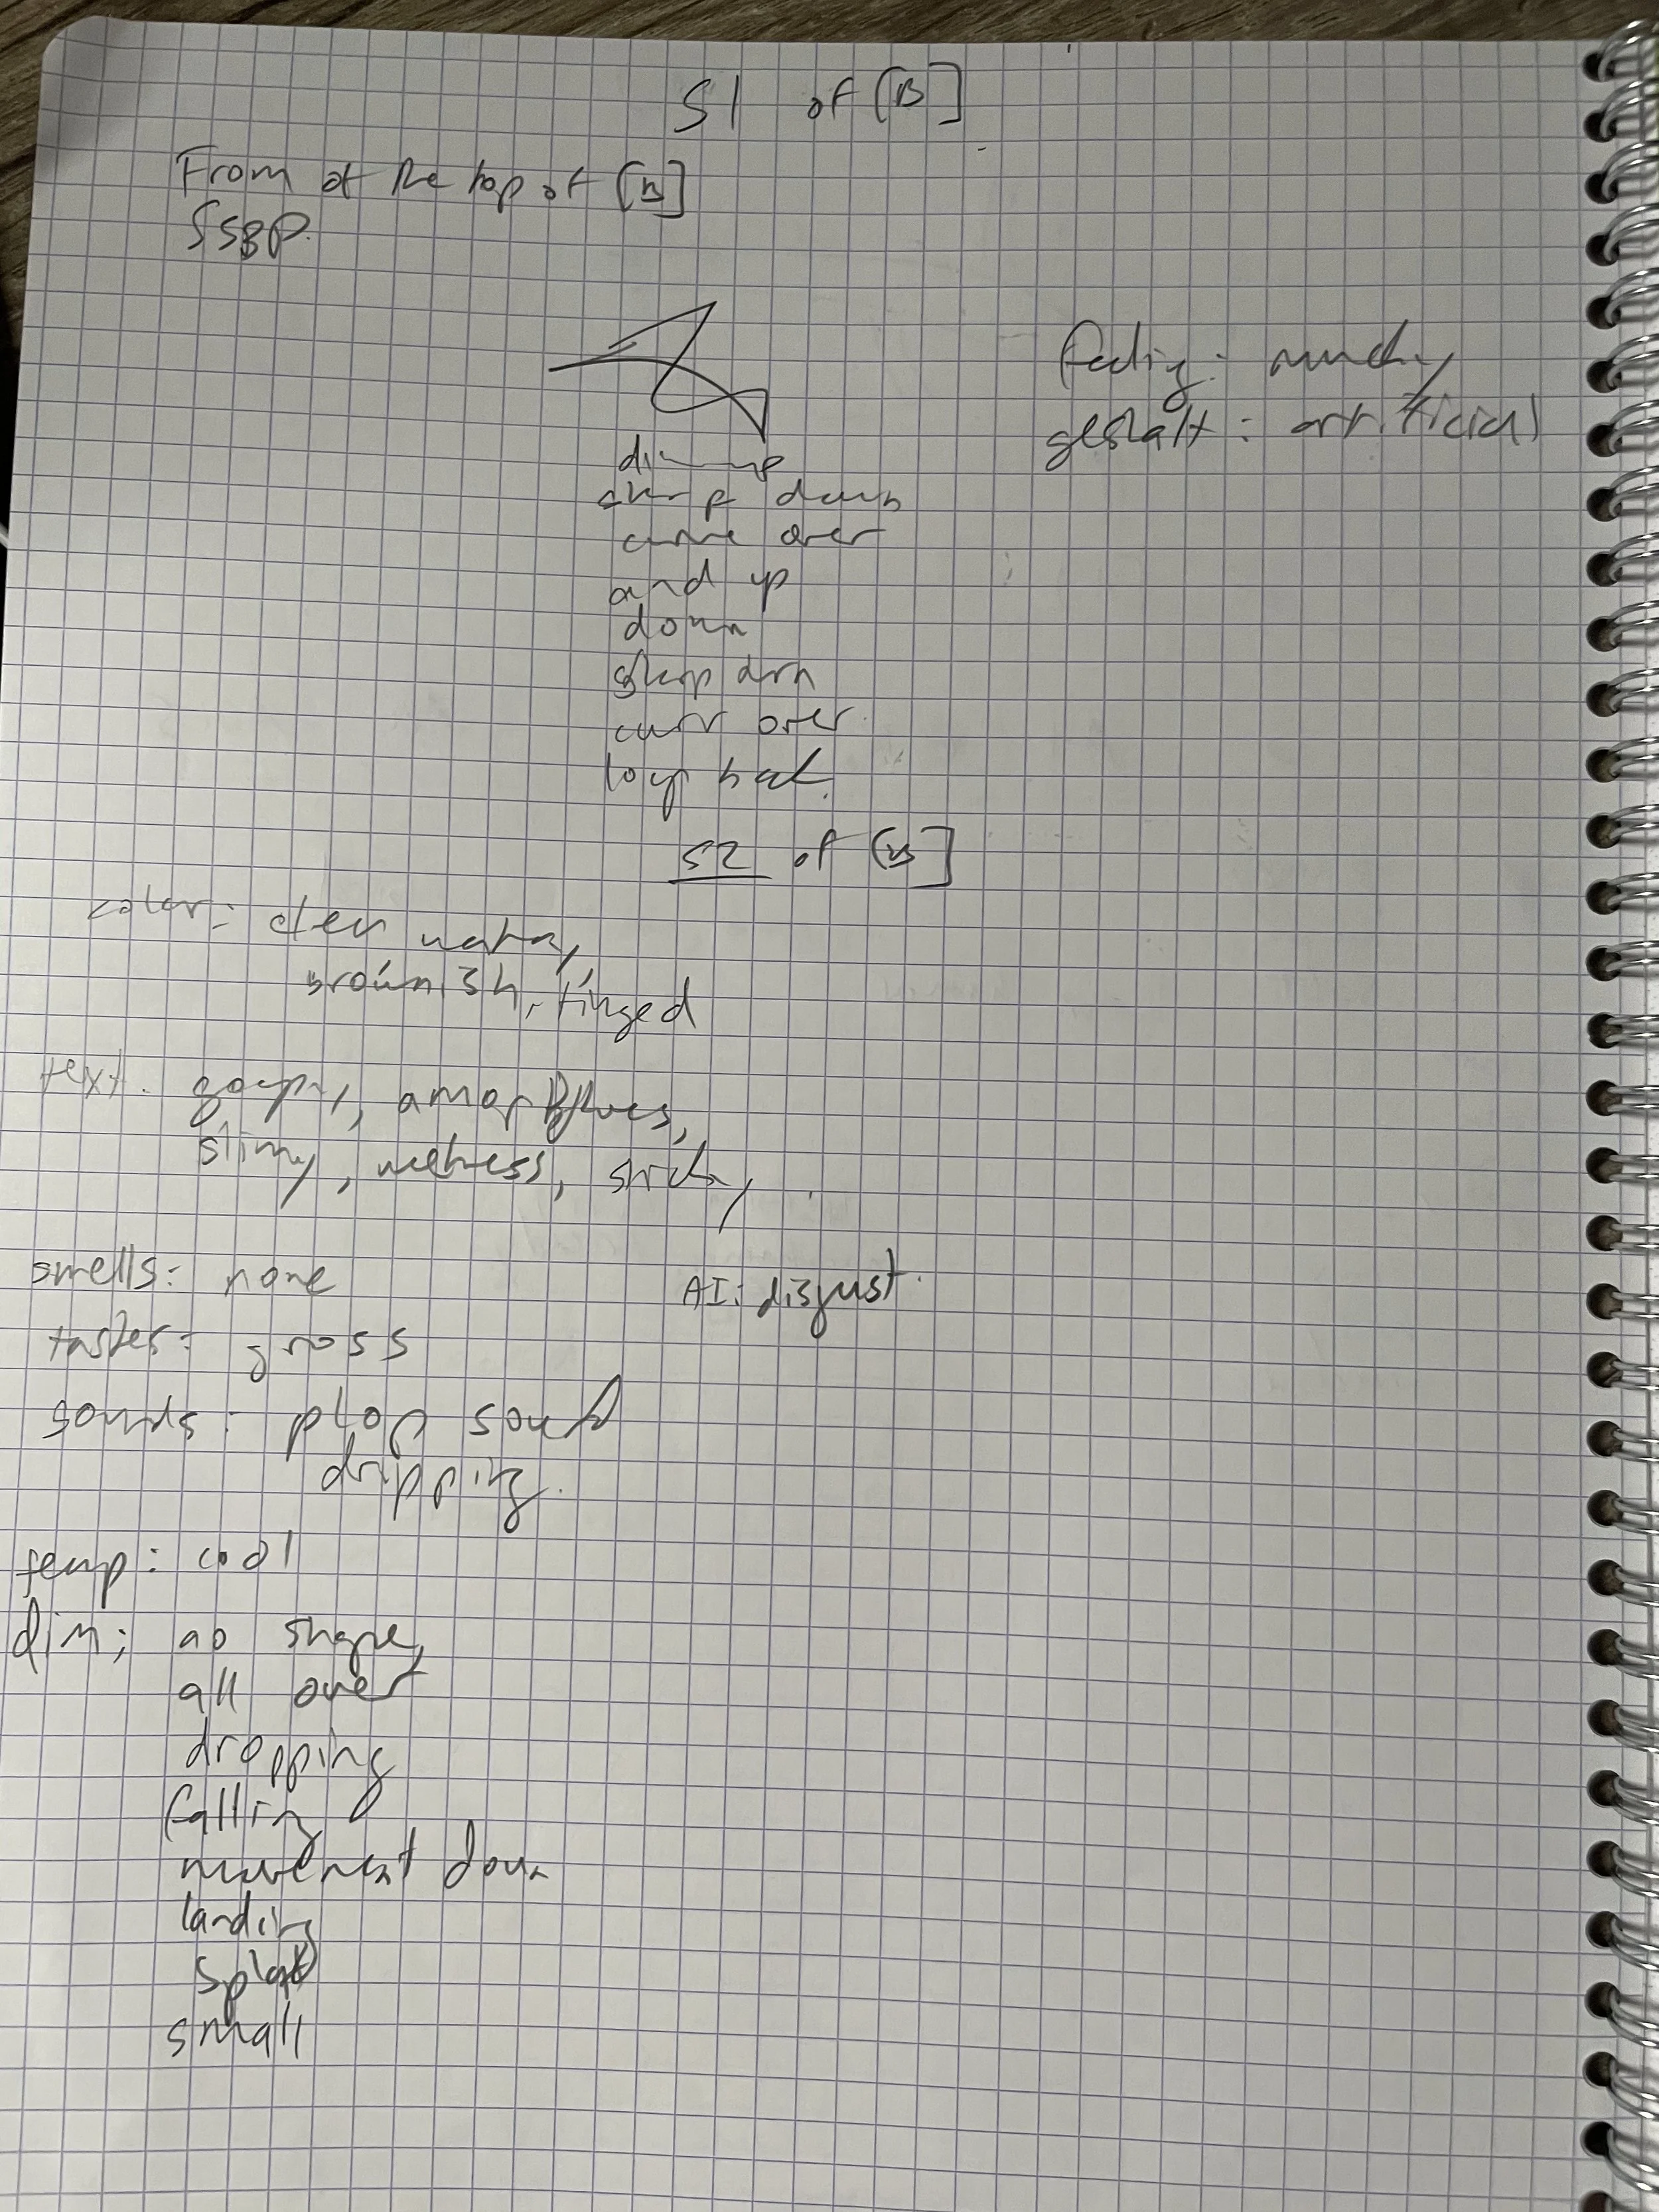 S1 of [B]
From at the top of [B]
SSBP.
feeling: mucky
gestalt: artificial
up
sharp down
curve over
and up
down
sharp down
curv over
loop back.
S2 of [B]
color: clear watery,
brownish, tinged
text. goopy, amorphous,
slimy, wetness, sticky
smells: none
AI: disgust.
tastes: gross
sounds: plop sound
dripping.
temp: cool
dim: no shape,
all over
dropping
falling
movement down
landing
splat
small